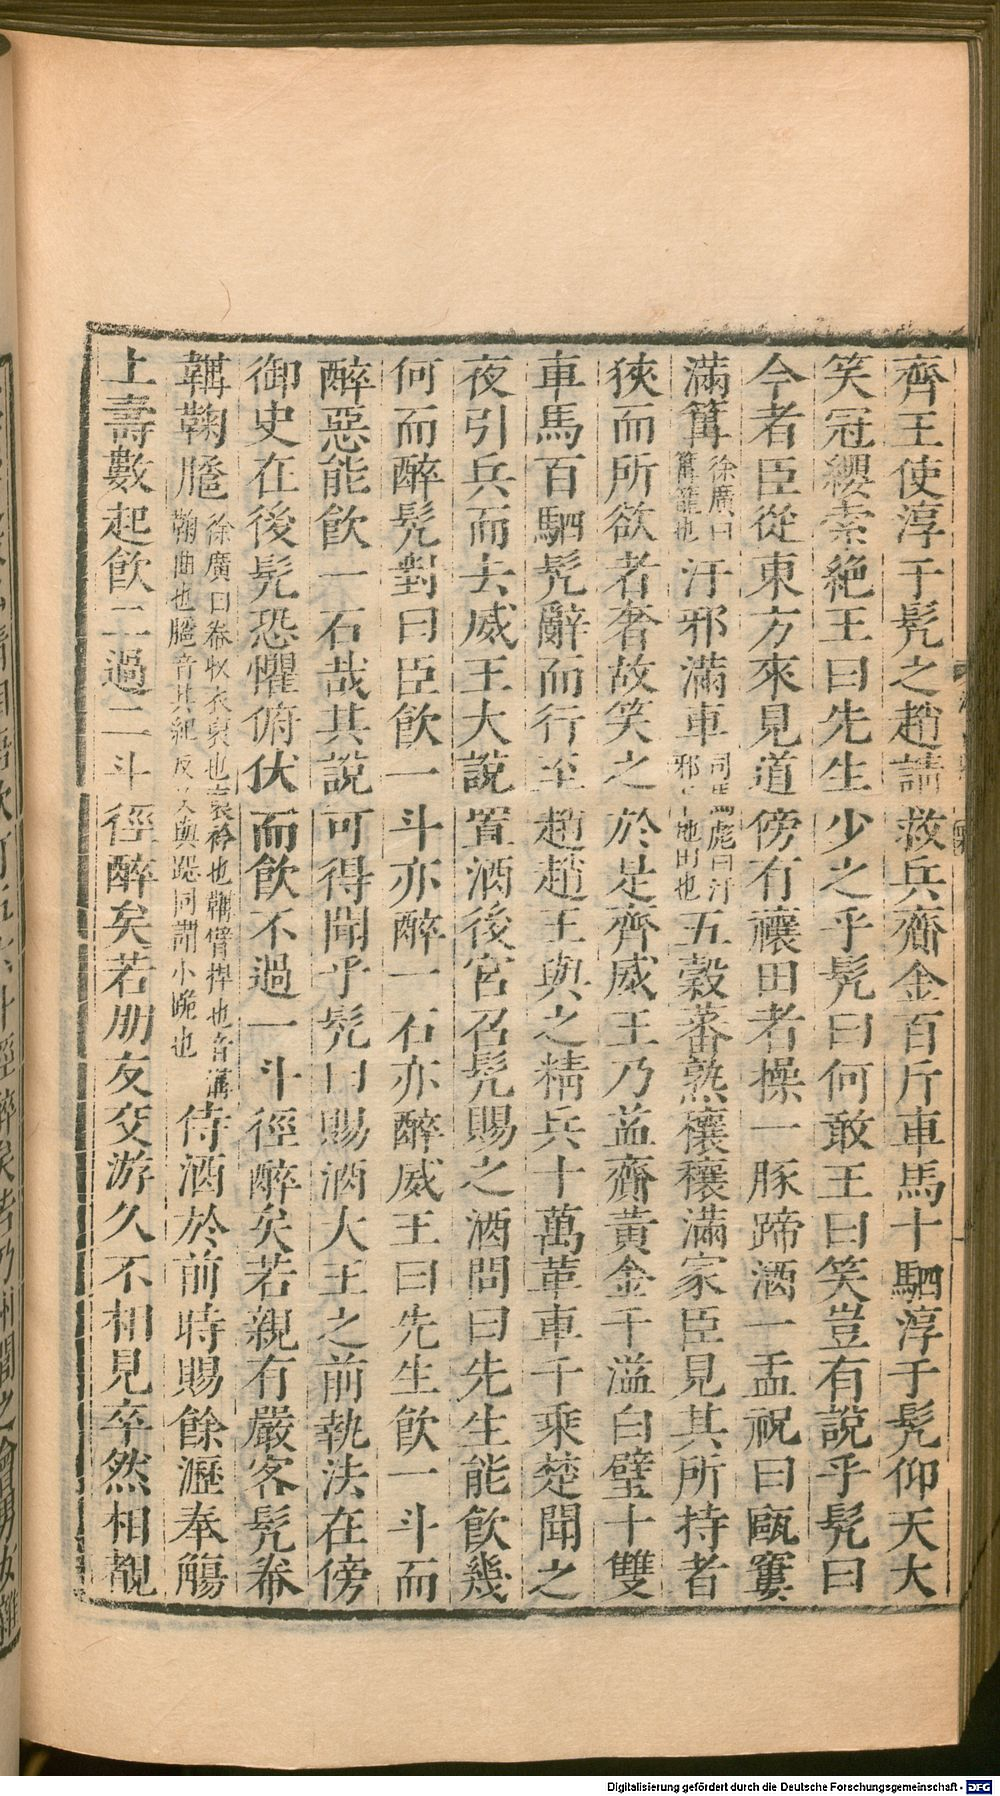 齊王使淳于髡之趙請救兵齎金百斤車馬十駟淳于髡仰天大
笑冠纓索絶王曰先生少之乎髡曰何敢王曰笑豈有說乎髡曰
今者臣從東方來見道傍有禳田者操一豚蹄酒一盂祝曰甌窶
滿篝徐廣曰篝籠也汙邪滿車司馬彪曰汙邪下地田也五穀蕃熟穰穰滿家臣見其所持者
狹而所欲者奢故笑之於是齊威王乃益齎黃金千溢白璧十雙
車馬百駟髡辭而行至趙趙王與之精兵十萬革車千乘楚聞之
夜引兵而去威王大說置酒後宮召髡賜之酒問曰先生能飲幾
何而醉髡對曰臣飲一斗亦醉一石亦醉威王曰先生飲一斗而
醉惡能飲一石哉其說可得聞乎髡曰賜酒大王之前執法在傍
御史在後髡恐懼俯伏而飲不過一斗徑醉矣若親有嚴客髡帣
韝鞠䠆徐廣曰帣收衣褎也袠衿也韝臂捍也音溝鞠曲也䠆音其紀反又與跽同謂小跪也侍酒於前時賜餘瀝奉觴
上壽數起飲不過二斗徑醉矣若朋友交游久不相見卒然相覩
Digitalisierung gefördert durch die Deutsche Forschungsgemeinschaft - DFG